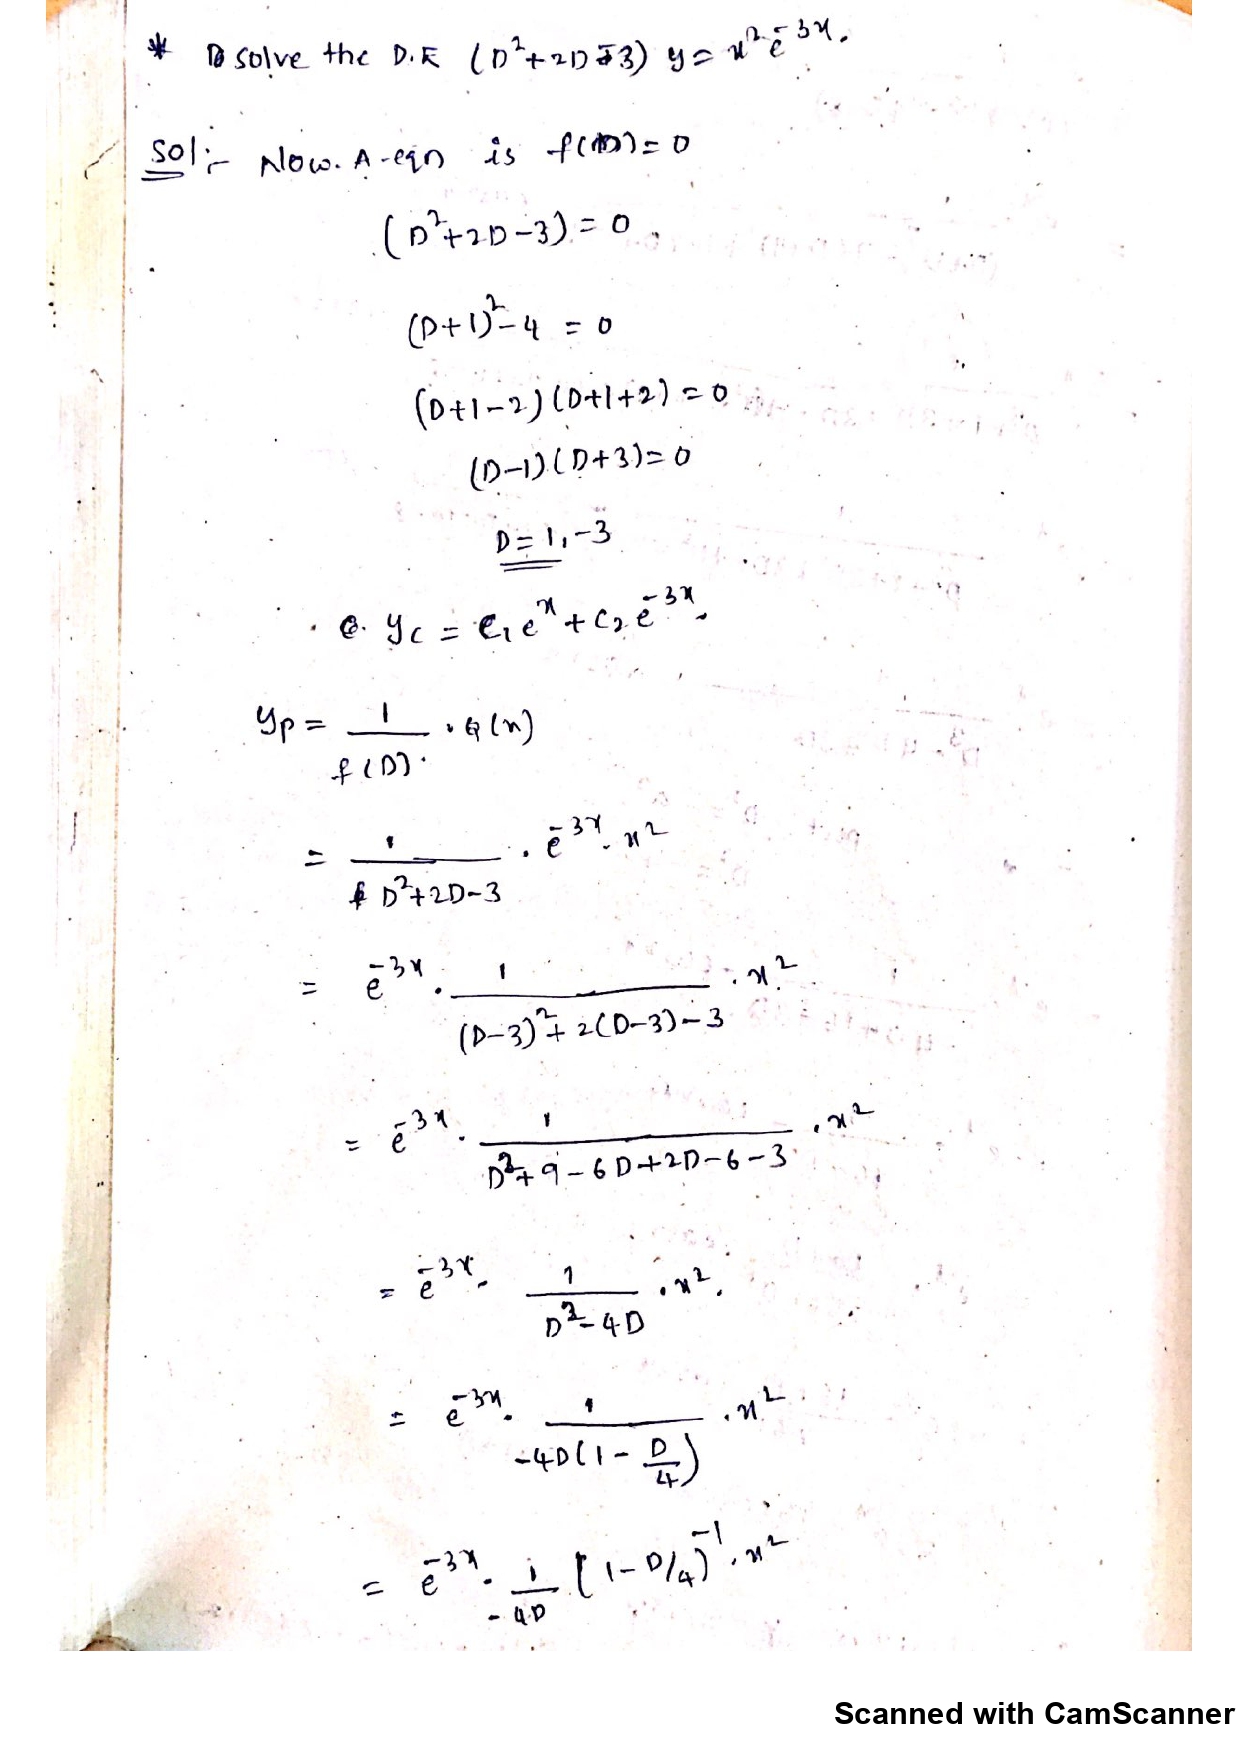 * solve the D.E (D²+2D-3) y = x² e^-3x.
Sol:- Now. A-eqn is f(D) = 0
(D²+2D-3) = 0.
(D+1)² - 4 = 0
(D+1-2) (D+1+2) = 0
(D-1) (D+3) = 0
D = 1, -3
yc = C1 e^x + C2 e^-3x.
yp = 1/f(D) . Q(x)
= 1/(D²+2D-3) . e^-3x . x²
= e^-3x . 1/((D-3)² + 2(D-3) - 3) . x²
= e^-3x . 1/(D²+9-6D+2D-6-3) . x²
= e^-3x . 1/(D²-4D) . x².
= e^-3x . 1/(-4D(1 - D/4)) . x²
= e^-3x . 1/(-4D) [1-D/4]^-1 . x²
Scanned with CamScanner